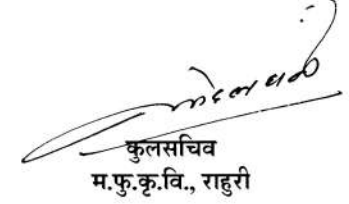 कुलसचिव
म.फु.कृ.वि., राहुरी